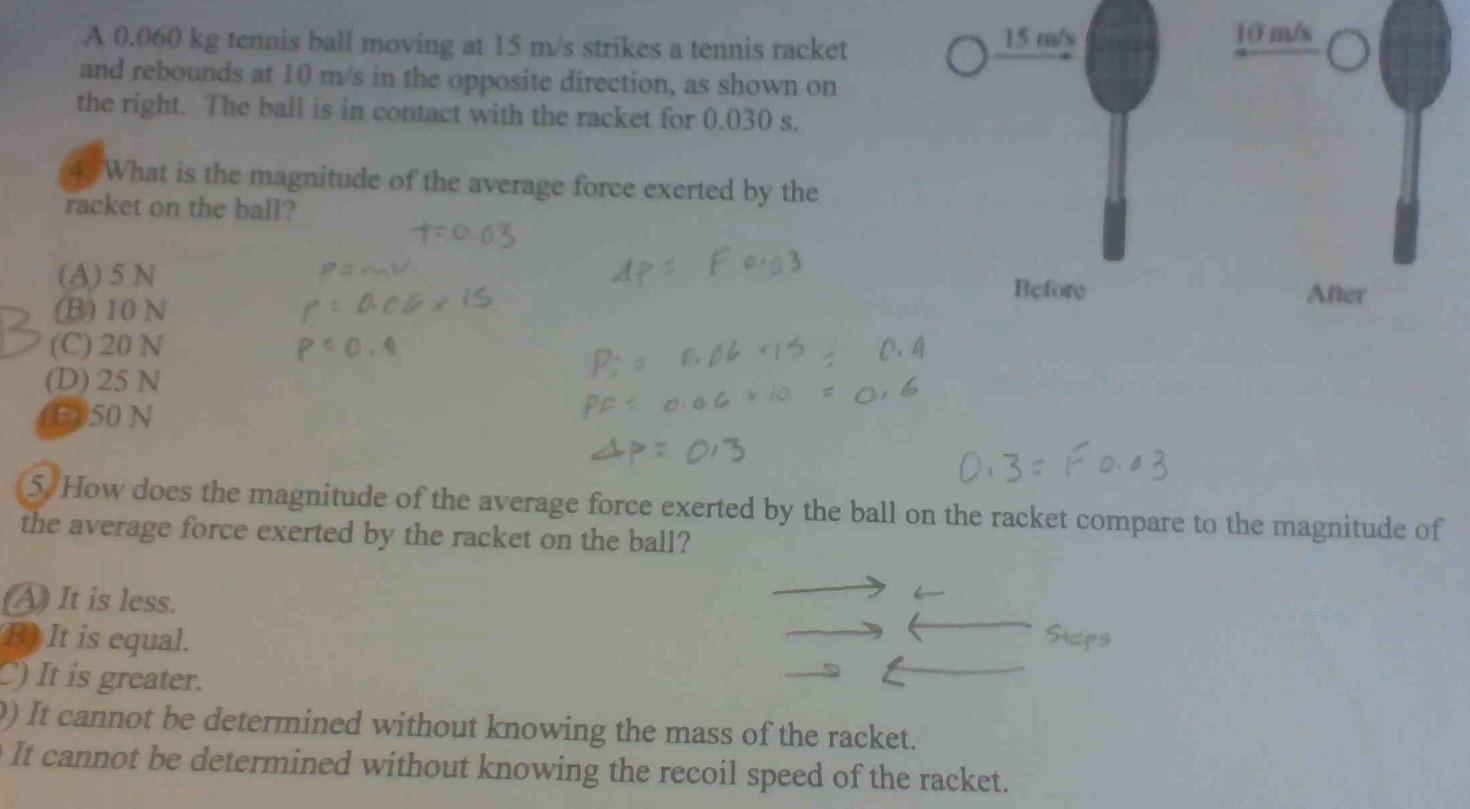 A 0.060 kg tennis ball moving at 15 m/s strikes a tennis racket
and rebounds at 10 m/s in the opposite direction, as shown on
the right. The ball is in contact with the racket for 0.030 s.
15 m/s
10 m/s
Before
After
4. What is the magnitude of the average force exerted by the
racket on the ball?
t=0.03
(A) 5 N
(B) 10 N
(C) 20 N
(D) 25 N
(E) 50 N
B
P=mv
P=0.06×15
P=0.9
ΔP= F 0.03
Pi= 0.06×15= 0.9
PF= 0.06×10 = 0.6
ΔP= 0.3
0.3= F 0.03
5. How does the magnitude of the average force exerted by the ball on the racket compare to the magnitude of
the average force exerted by the racket on the ball?
(A) It is less.
B) It is equal.
C) It is greater.
D) It cannot be determined without knowing the mass of the racket.
It cannot be determined without knowing the recoil speed of the racket.